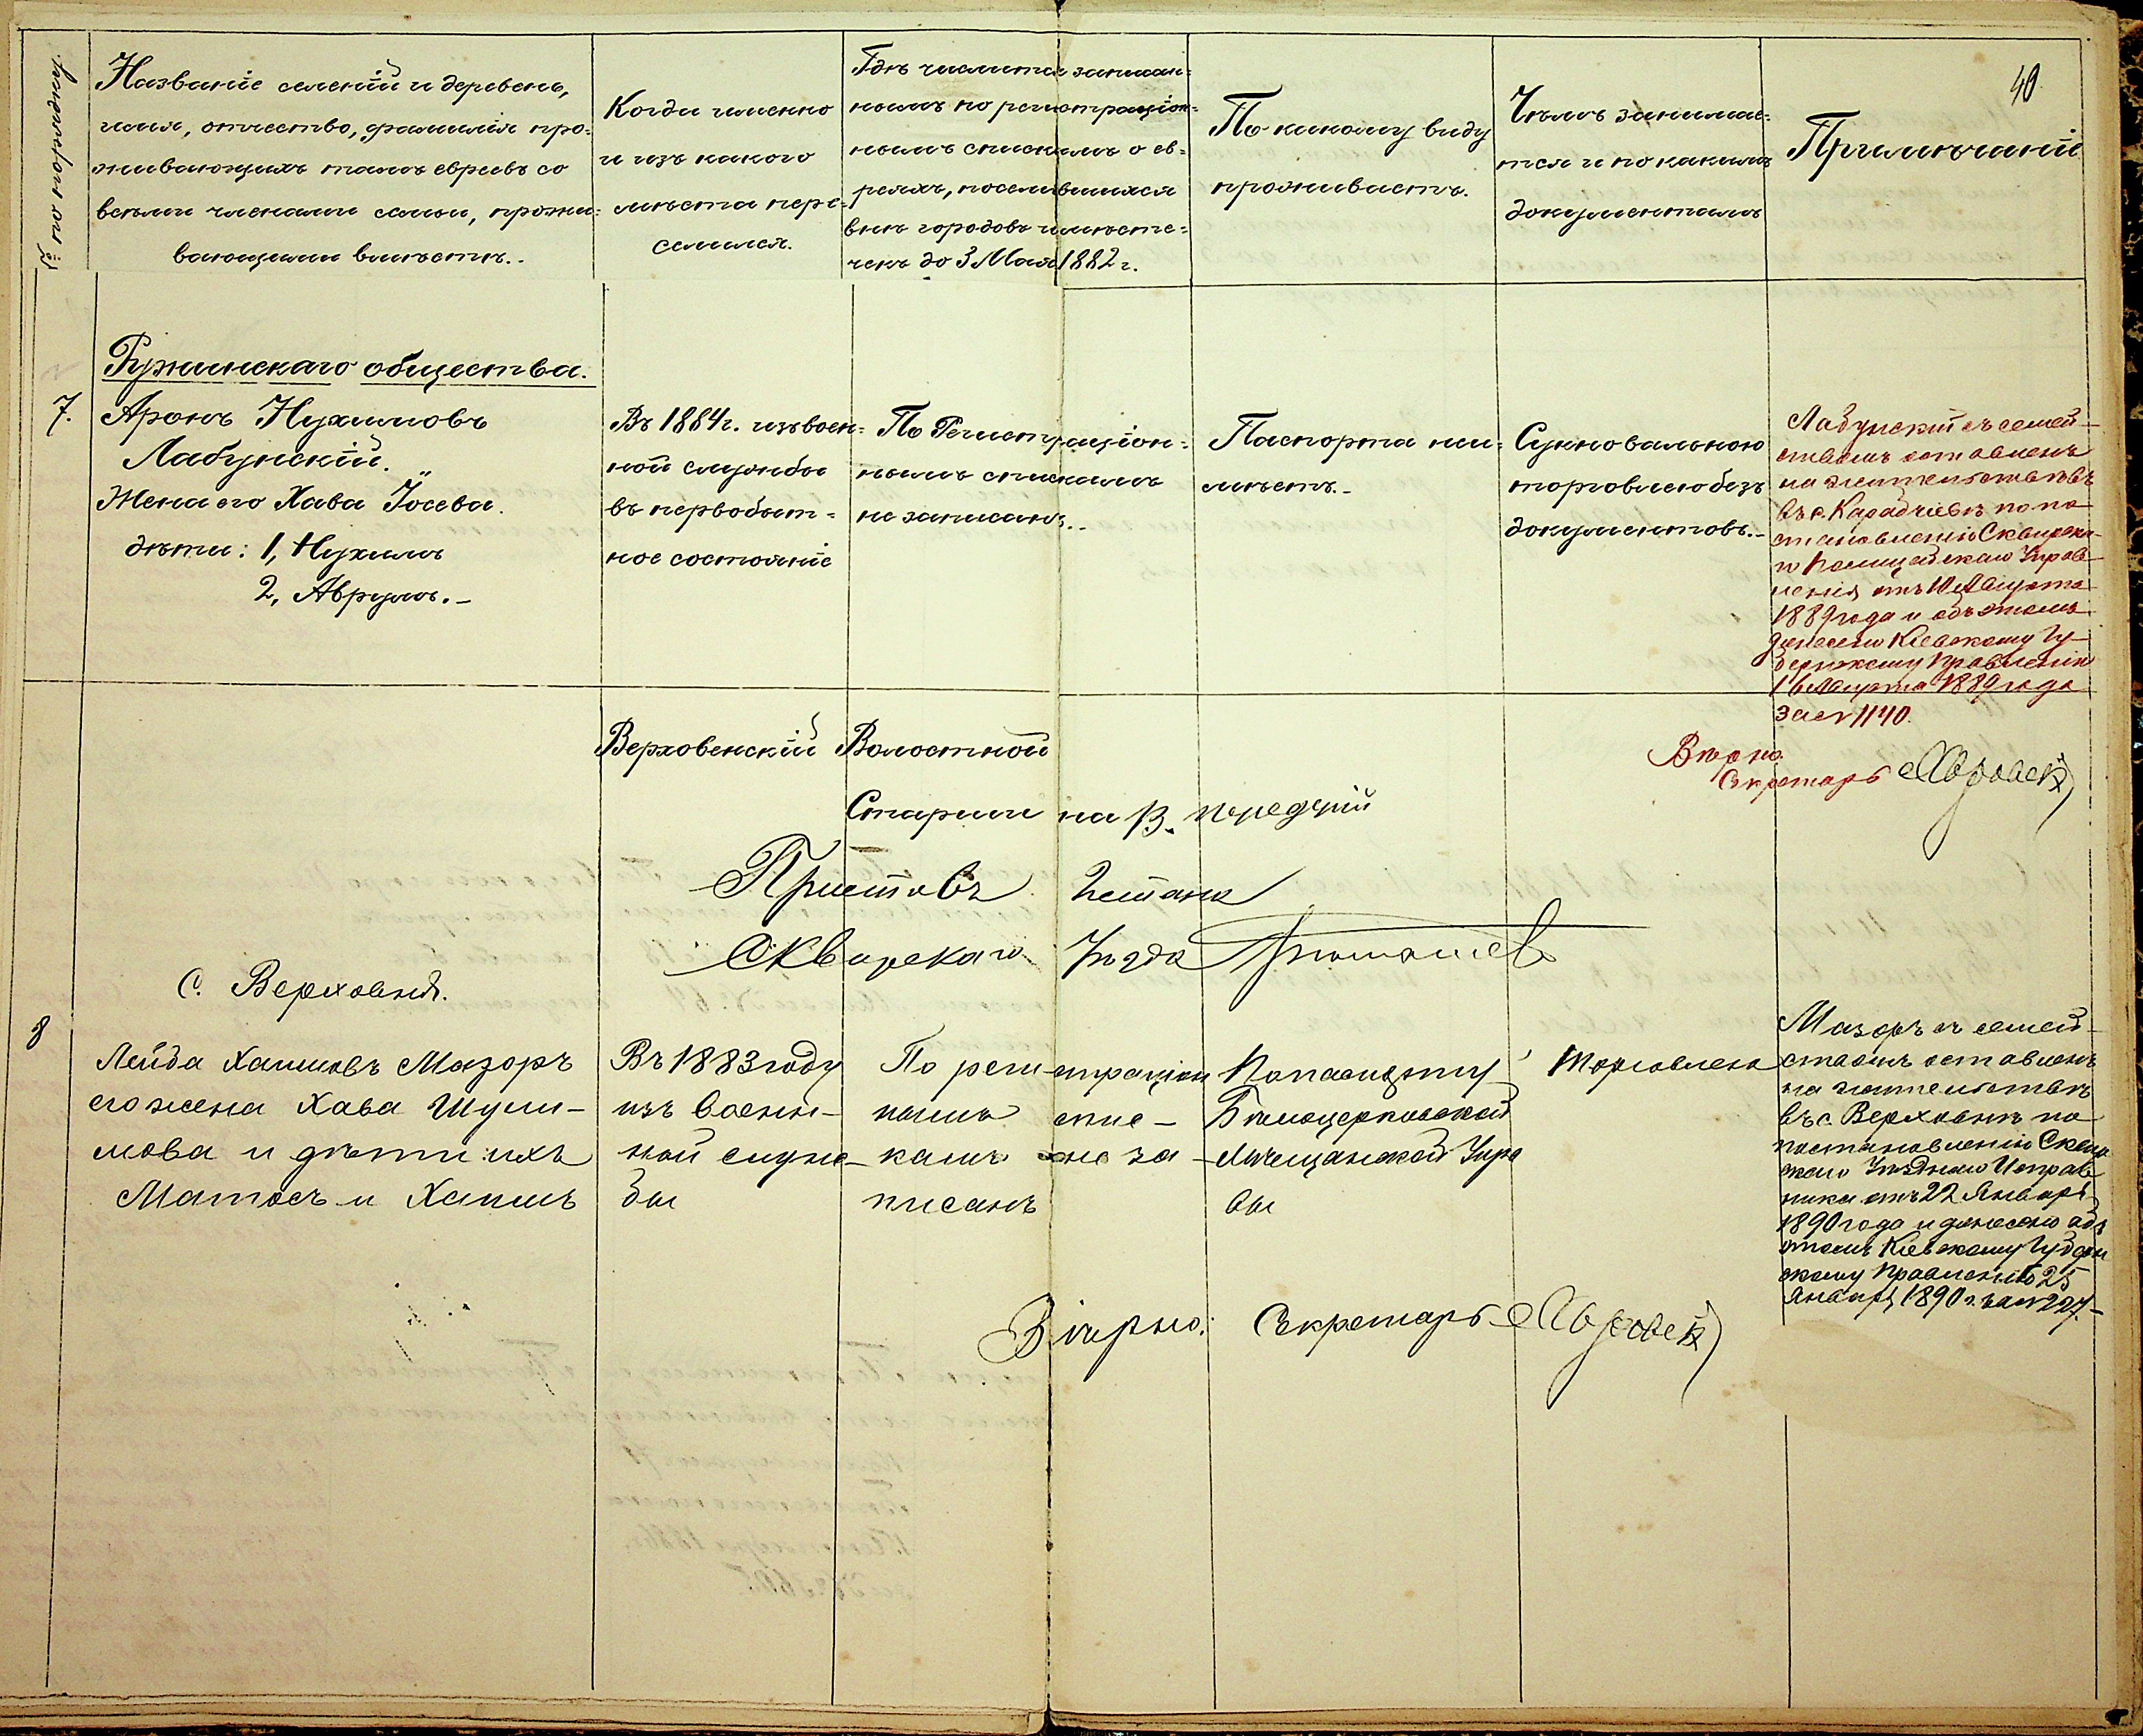 40.
№ по порядку
Названіе селеній и деревень,
имя, отчество, фамилія про-
живающихъ тамъ евреевъ со
всѣми членами семьи, прожи-
вающими вмѣстѣ.
Когда именно
и изъ какого
мѣста пере-
селился.
Гдѣ числится записан-
нымъ по регистраціон-
нымъ спискамъ о ев-
реяхъ, поселившихся
внѣ городовъ и мѣсте-
чекъ до 3 Мая 1882 г.
По какому виду
проживаетъ.
Чѣмъ занимае-
тся и по какимъ
документамъ
Примѣчаніе
Ружинскаго общества.
7.
Аронъ Нухимовъ
Лабунскій.
Жена его Хава Іосева.
дѣти: 1, Нухимъ
2, Аврумъ.
Въ 1884 г. изъ воен-
ной службы
въ первобыт-
ное состояніе
По Регистраціон-
нымъ спискамъ
не записанъ.
Паспорта не и-
мѣетъ.
Сукновальною
торговлею безъ
документовъ.
Лабунскій съ семей-
ствомъ оставленъ
на жительствѣ
въ с. Карабчіевѣ по по-
становленію Сквирска-
го Полицейскаго Управ-
ленія отъ 10 Августа
1889 года и объ этомъ
донесено Кіевскому Гу-
бернскому Правленію
16 Августа 1889 года
за № 1140.
Вѣрно.
Секретарь
Верховенскій Волостной
Старшина В.
Приставъ 2 стана
Сквирскаго Уѣзда
С. Верховня.
8
Лейба Хаимовъ Мазоръ
его жена Хава Шули-
мова и дѣти ихъ
Матосъ и Хаимъ
Въ 1883 году
изъ военн-
ной служ-
бы
По реги-страціон
нымъ спис-
камъ не за-
писанъ
По паспорту
Бѣлоцерковской
Мѣщанской Упра
вы
Торговлею
Мазоръ съ семей-
ствомъ оставленъ
на жительствѣ
въ с. Верховнѣ по
постановленію Сквир
скаго Уѣзднаго Исправ
ника отъ 22 Января
1890 года и донесено объ
этомъ Кіевскому Губерн
скому Правленію 25
Января 1890 г. за № 227.
Вѣрно: Секретарь